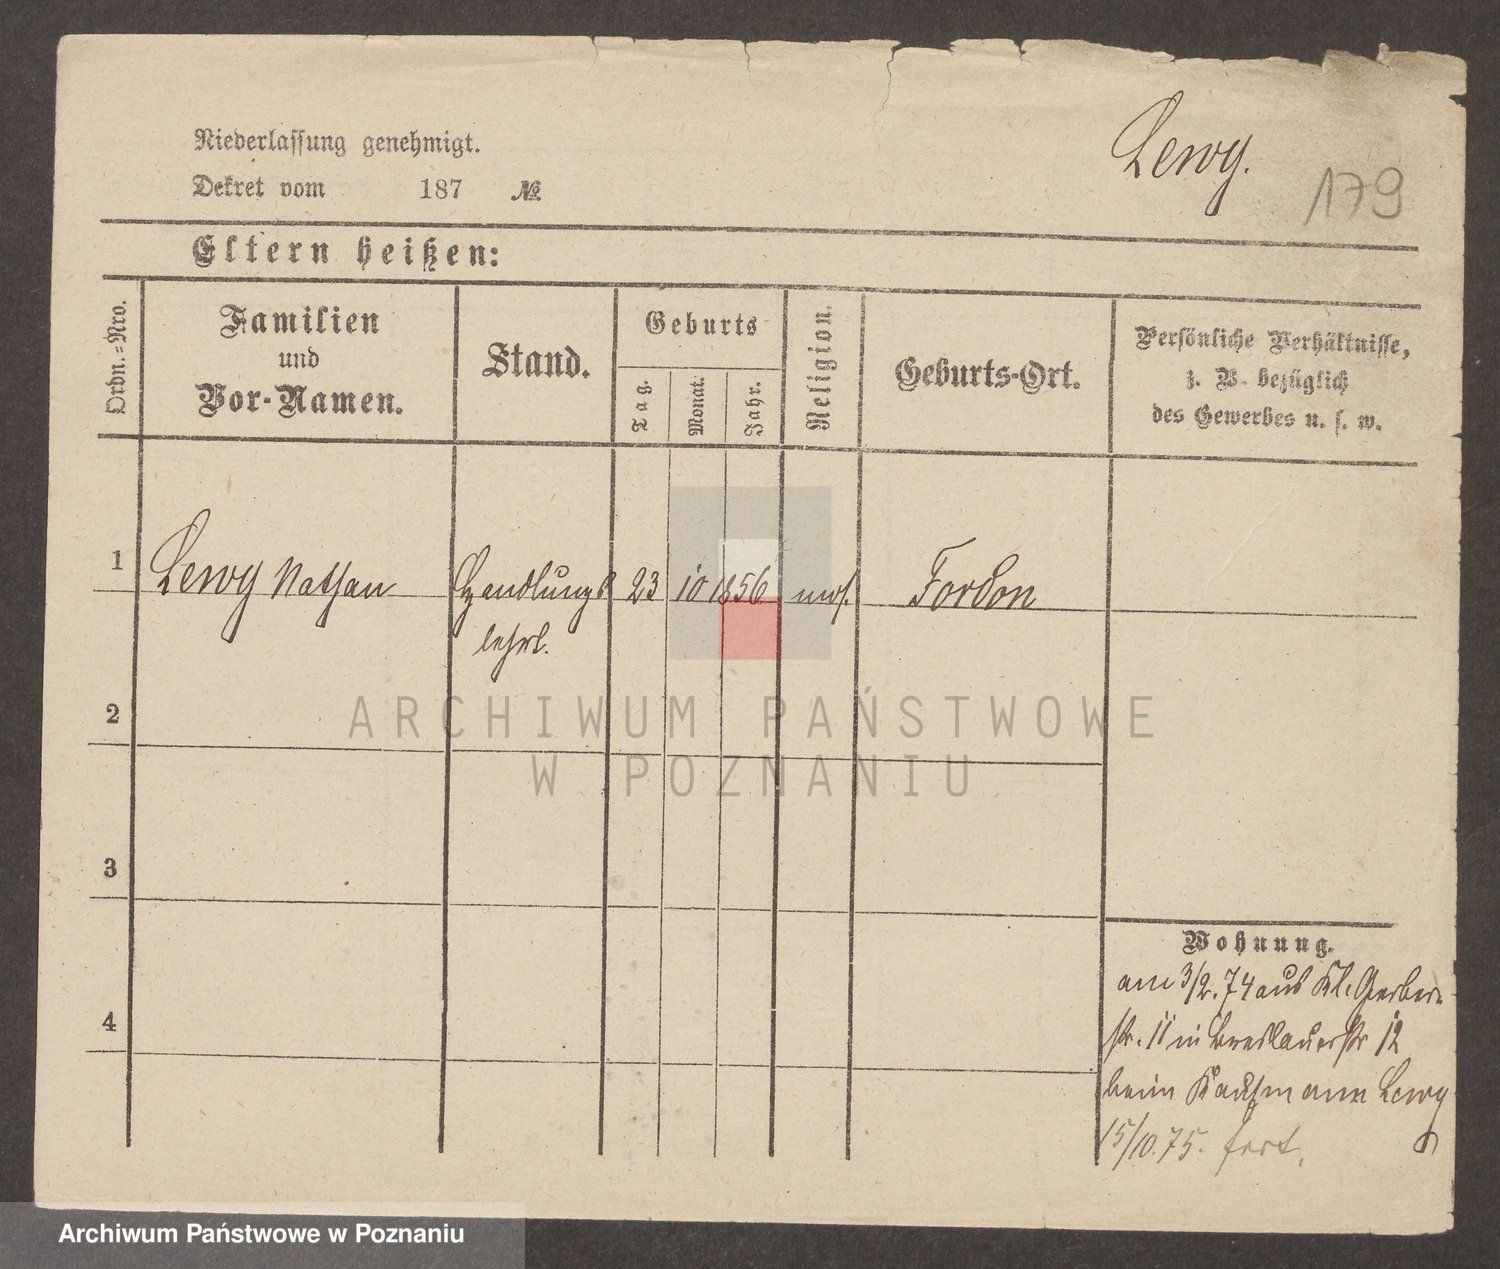 Lewy.
179
Niederlassung genehmigt.
Dekret vom 187 №
Eltern heißen:
Ordn.=Nro.
Familien
und
Vor-Namen.
Stand.
Geburts
Tag.
Monat.
Jahr.
Religion.
Geburts-Ort.
Persönliche Verhältnisse,
z. B. bezüglich
des Gewerbes u. s. w.
1 Lewy Nathan Handlungs 23 10 1856 mos. Fordon
lehrl.
2
3
4
Wohnung.
am 3/2. 74 aus Kl. Gerber-
str. 11 in Breslauerstr 12
beim Kaufmann Lewy
15/10. 75. fort.
ARCHIWUM PAŃSTWOWE
W POZNANIU
Archiwum Państwowe w Poznaniu